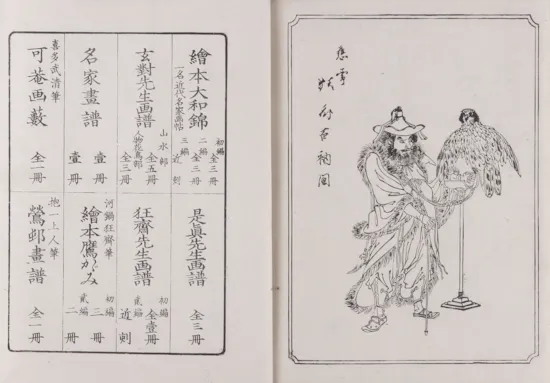 應需
繪本大和錦
一名近代名家画帖
初編 全三冊
二編 全三冊
三編 近刻
玄對先生画譜
山水部 全五冊
人物花鳥部 全三冊
名家畫譜
壹冊
壹冊
喜多武清筆
可菴画藪 全一冊
是真先生画譜 全三冊
狂齊先生画譜
初編 全壹冊
貳編 近刻
河鍋狂齊筆
繪本鷹かゞみ
初編 三冊
貳編 二冊
抱一上人筆
鶯邨畫譜 全一冊